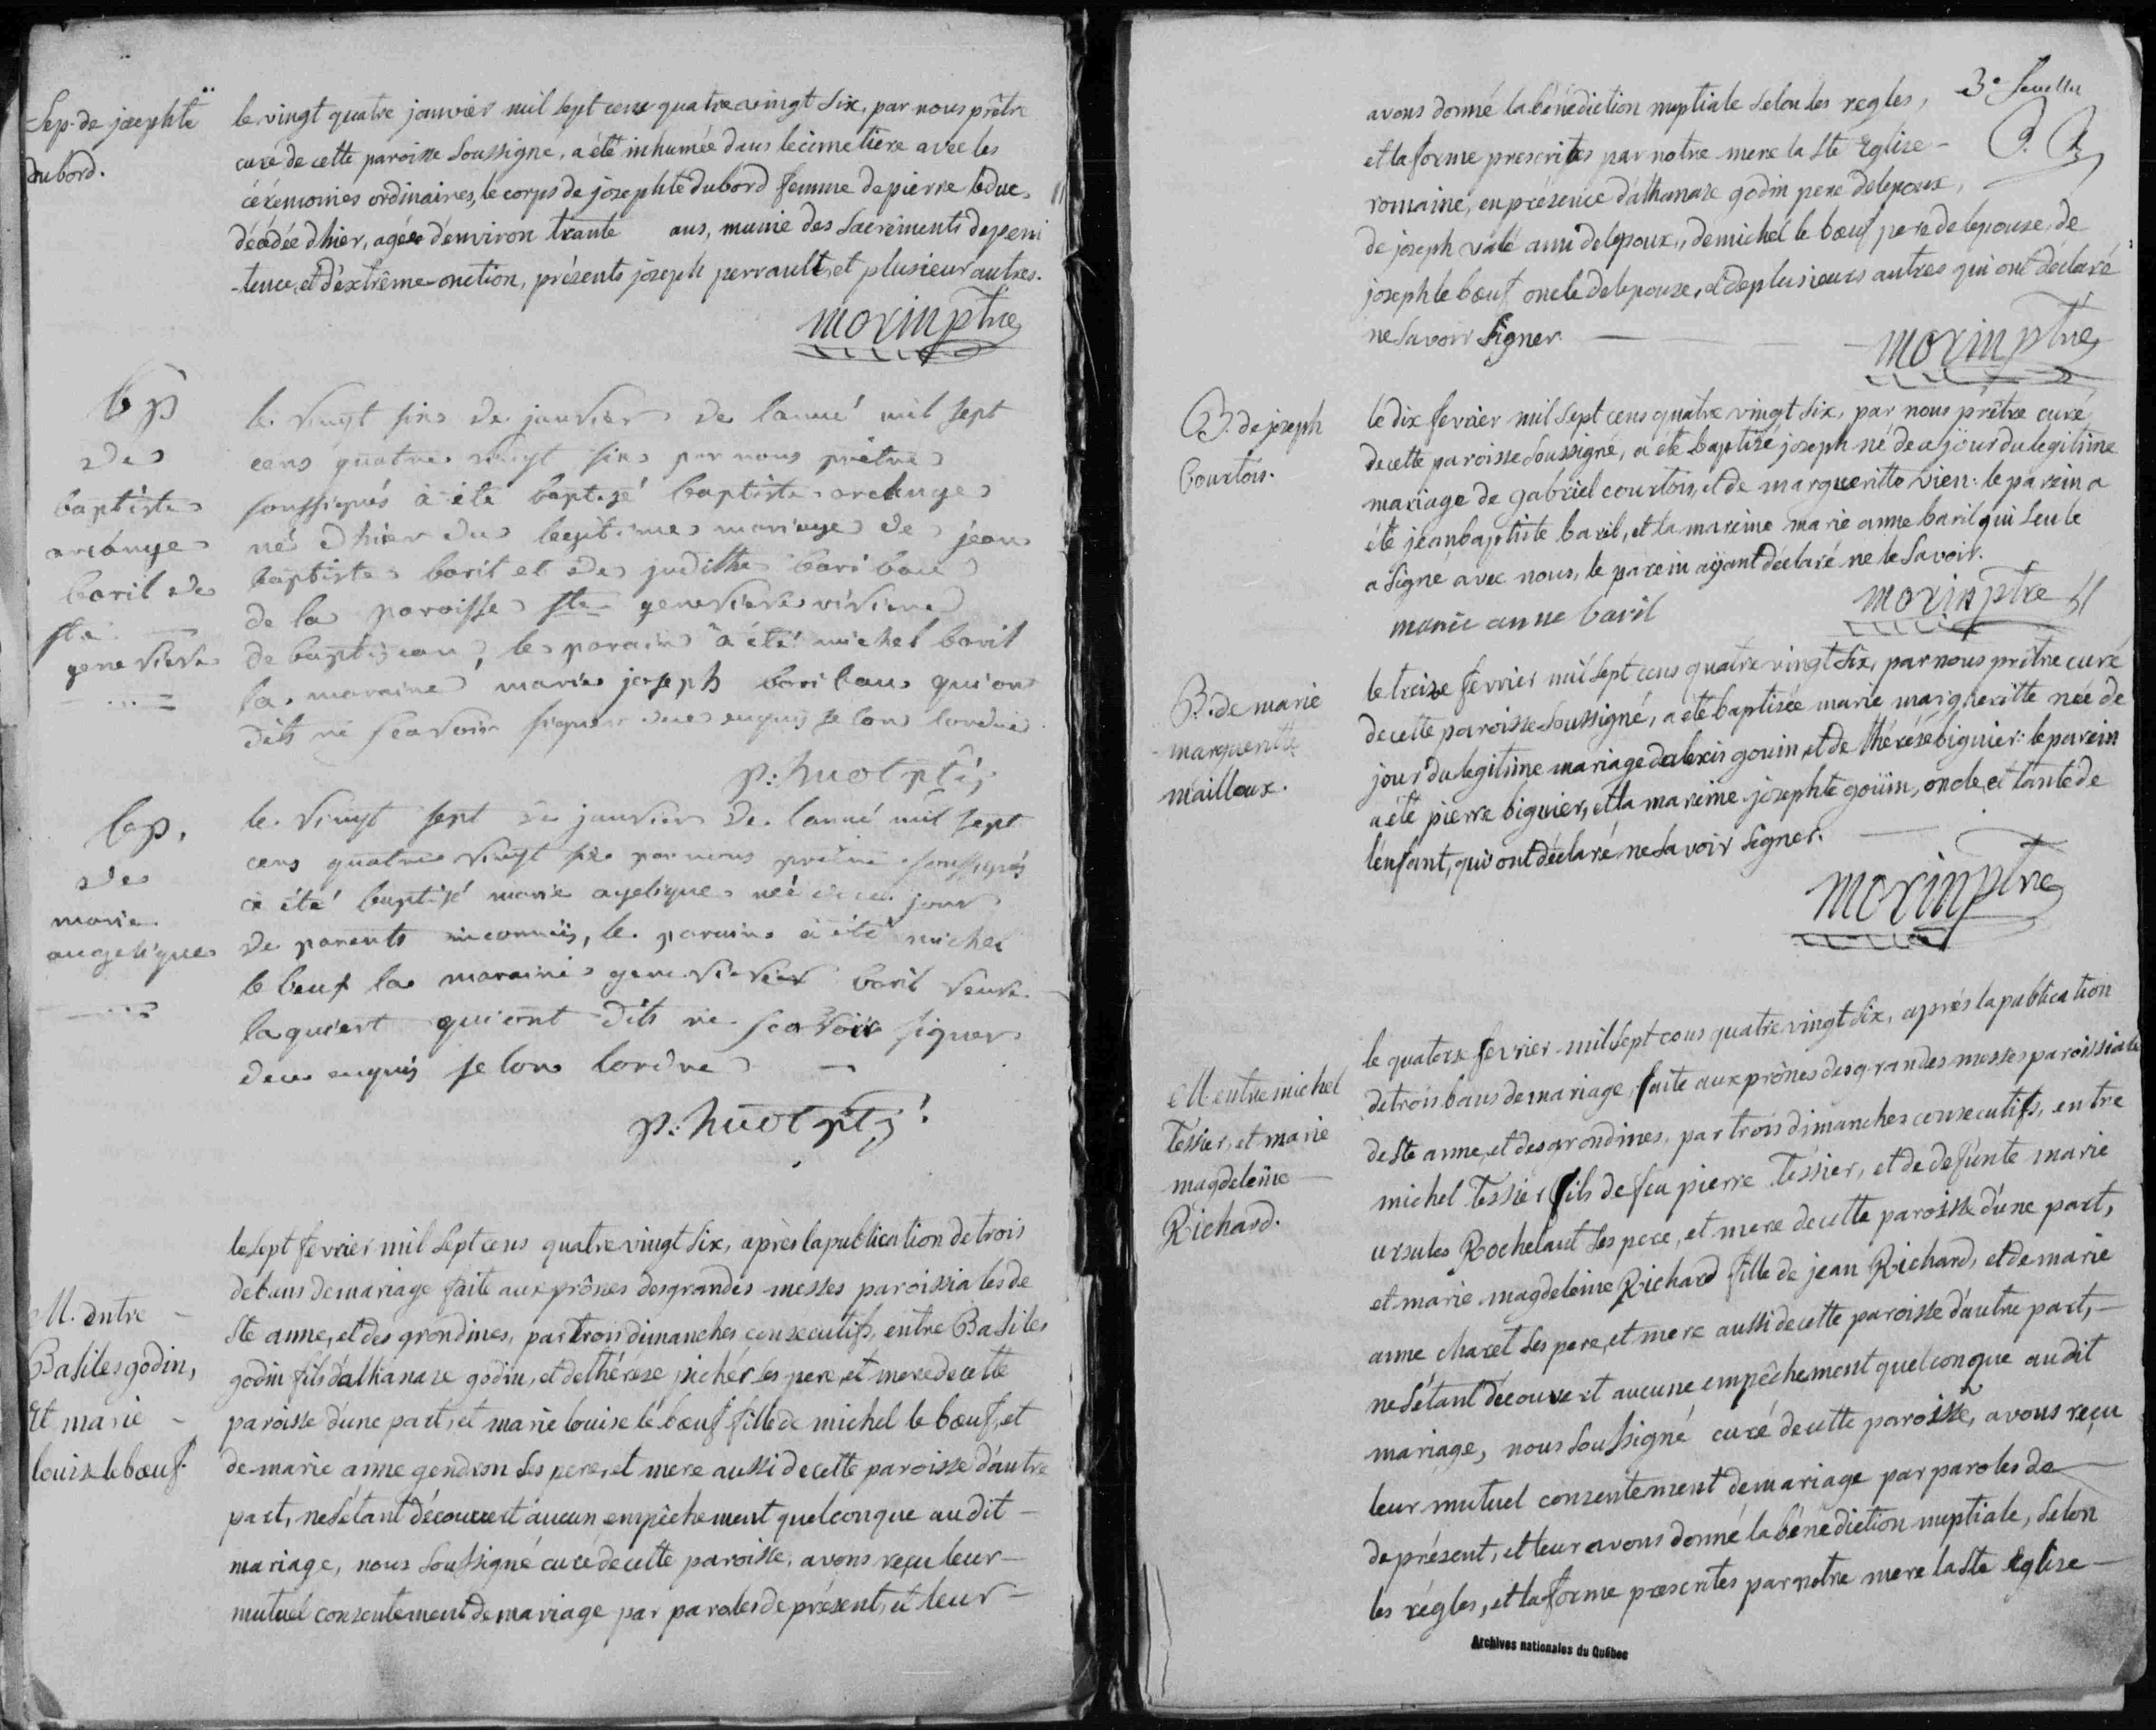 Sep. de josephte
dubord.
le vingt quatre janvier mil sept cens quatre vingt six, par nous prêtre
curé de cette paroisse soussigné, a été inhumée dans le cimetiere avec les
cérémonies ordinaires, le corps de josephte dubord femme de pierre leduc,
décédée d'hier, agée d'environ trante ans, munie des sacrements de peni
-tence, et d'extrême-onction, présents joseph perrault, et plusieur autres.
morin ptre
bp
de
baptiste
archange
baril de
ste
genevieve
le vingt six de janvier de lanné mil sept
cens quatre vingt six par nous prêtre
soussignés à été baptisé baptiste archange
né d hier du legitime mariage de jean
baptiste baril et de judithe baribau
de la paroisse ste genevieve riviere
de batiscan, le parain à été michel baril
la maraine marie joseph baribau qui on
dits ne scavoir signer de ce enquis selon lordre
p: huot ptr
bap.
de
marie
angelique
le vingt sept de janvier de lanné mil sept
cens quatre vingt six par nous prêtre soussignés
à été baptisé marie agelique née de ce jour
de parents inconnüs, le parain à été michel
le beuf la maraine genevieve baril veuve
laquert qui ont dits ne scavoir signer
de ce enquis selon lordre
p: huot ptr
M. entre
Basiles godin,
Et marie
louise lebœuf.
le sept fevrier mil sept cens quatre vingt six, après la publication de trois
de bans de mariage faite aux prônes des grandes messes paroissiales de
Ste anne, et des grondines, par trois dimanches consecutifs, entre Basiles
godin fils d'athanaze godin, et de thérèse picher ses pere, et mere de cette
paroisse d'une part, et marie louise le bœuf fille de michel le bœuf, et
de marie anne gendron ses pere, et mere aussi de cette paroisse d'autre
part, ne s'étant découvert aucun empêchement quelconque au dit
mariage, nous soussigné curé de cette paroisse, avons reçu leur
mutuel consentement de mariage par paroles de présent, et leur
3e feuillet
avons donné la bénédiction nuptiale selon les regles,
et la forme prescrites par notre mere la Ste Eglise
romaine, en présence d'athanaze godin pere de lepoux,
de joseph valé ami de lepoux, de michel le bœuf pere de lepouse, de
joseph le bœuf oncle de lepouze, et de plusieurs autres qui ont déclaré
ne savoir signer
morin ptre
B. de joseph
Courtois.
le dix fevrier mil sept cens quatre vingt six, par nous prêtre curé
de cette paroisse soussigné, a été baptisé joseph né de ce jour du legitime
mariage de gabriel courtois, et de margueritte vien: le parein a
été jean baptiste baril, et la mareine marie anne baril qui seule
a signé avec nous, le parein ayant déclaré ne le savoir.
marie anne baril
morin ptre
B. de marie
margueritte
mailloux.
le treize fevrier mil sept cens quatre vingt six, par nous prêtre curé
de cette paroisse soussigné, a été baptisée marie margueritte née de
jour du legitime mariage d'alexis gouin, et de thérése biguier: le parein
a été pierre biguier, et la mareine josephte goüin, oncle, et tante de
l'enfant, qui ont déclaré ne savoir signer.
morin ptre
M. entre michel
Tessier, et marie
magdeleine
Richard.
le quatorze fevrier mil sept cens quatre vingt six, aprés la publication
de trois bans de mariage, faite aux prônes des grandes messes paroissiale
de Ste anne, et des grondines, par trois dimanches consecutifs, entre
michel Tessier fils de feu pierre Tessier, et de defunte marie
ursules Rochelaut ses pere, et mere de cette paroisse d'une part,
et marie magdeleine Richard fille de jean Richard, et de marie
anne charet ses pere, et mere aussi de cette paroisse d'autre part,
ne s'étant découvert aucune empêchement quelconque au dit
mariage, nous soussigné curé de cette paroisse, avons reçu
leur mutuel consentement de mariage par paroles de
de présent, et leur avons donné la bénédiction nuptiale, selon
les régles, et la forme prescrites par notre mere la Ste Eglise
Archives nationales du Québec